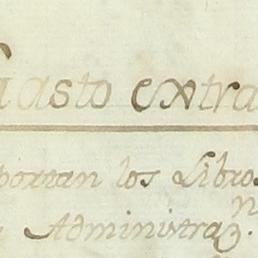 Gasto extra
portan los Libros
Administraz.n